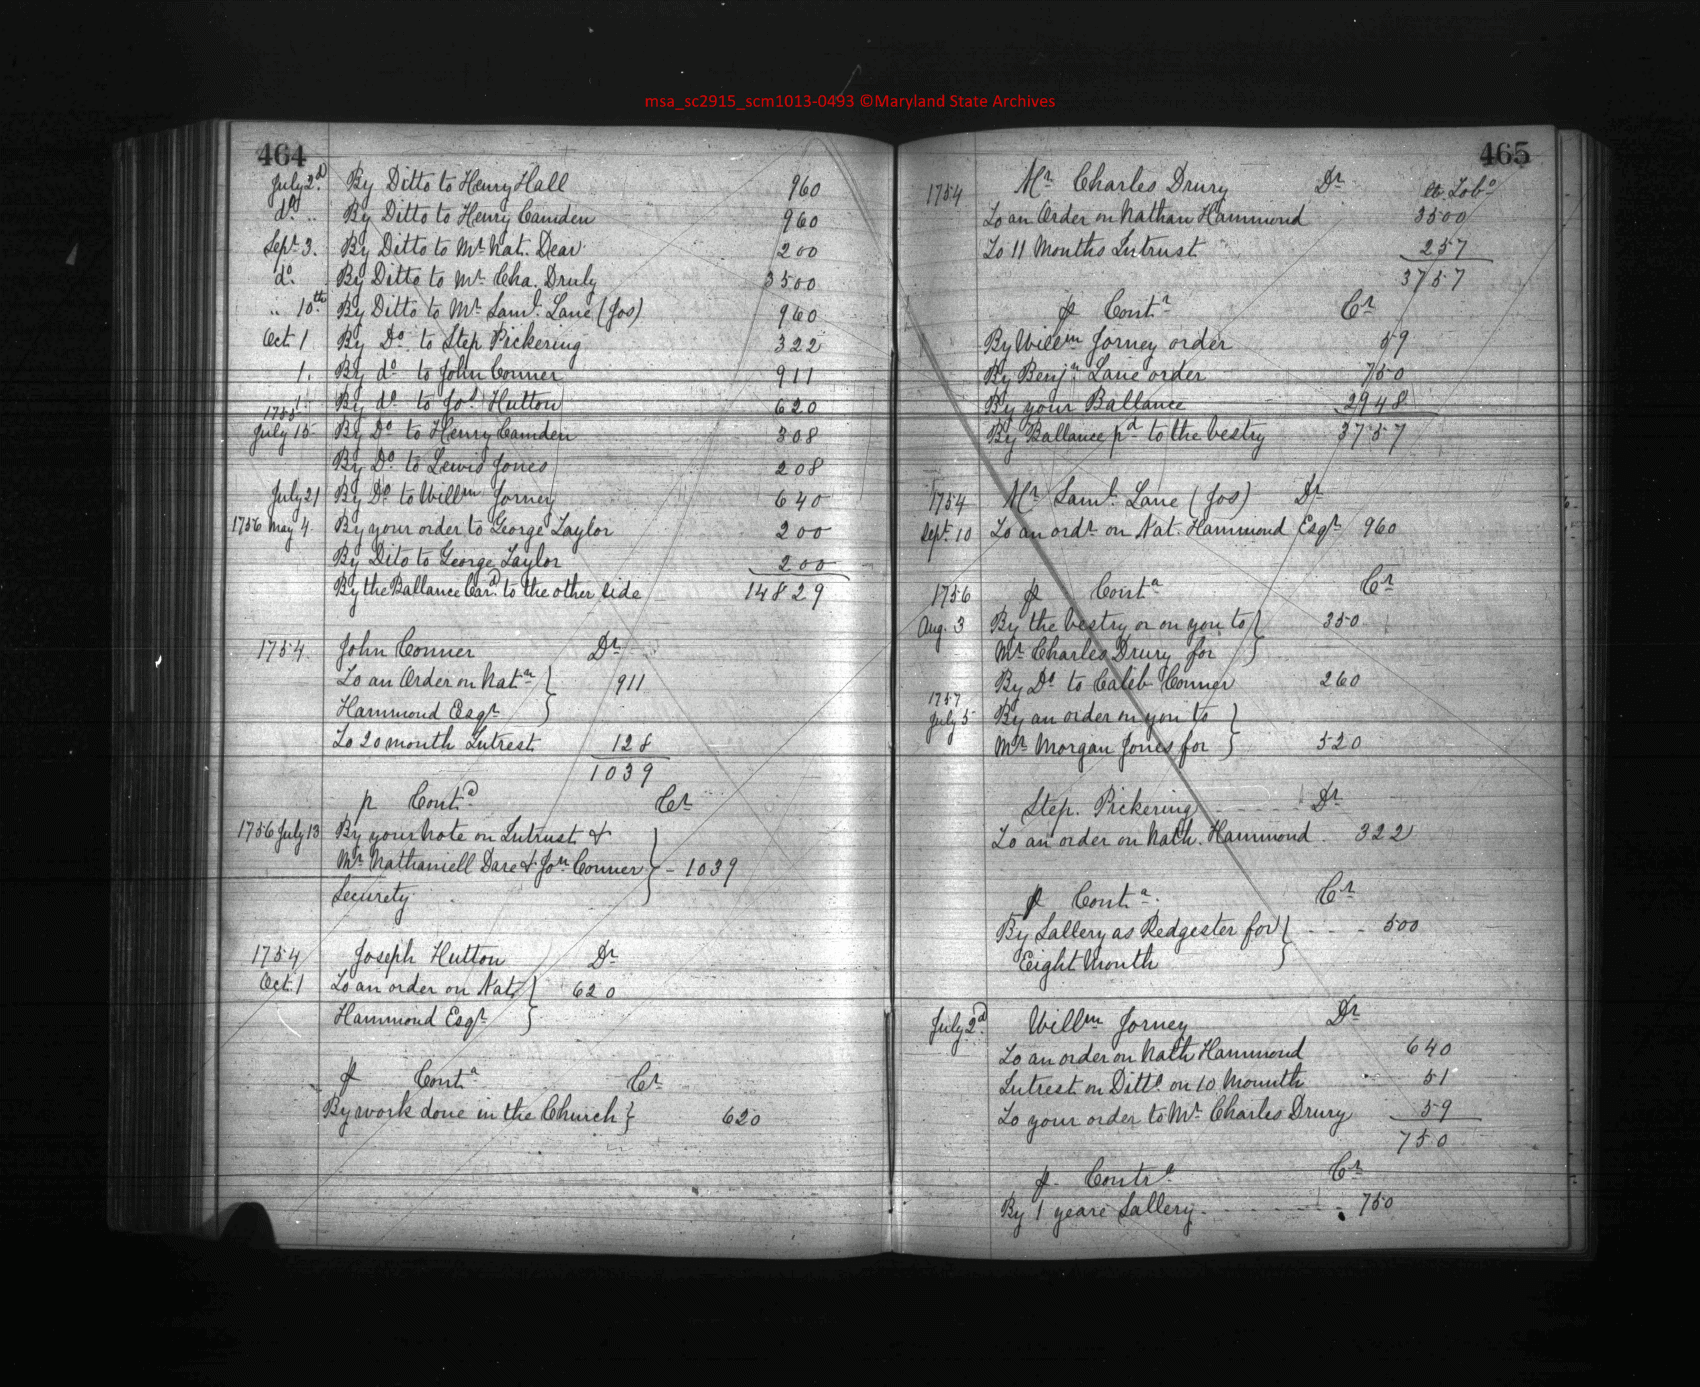 msa_sc2915_scm1013-0493 ©Maryland State Archives
464
July 2d. By Ditto to Henry Hall 960
do. .. By Ditto to Henry Camden 960
Sept. 3. By Ditto to Mr. Nat. Dear 200
do. By Ditto to Mr. Cha. Druly 3500
.. 10th By Ditto to Mr. Saml. Lane (Jos) 960
Oct. 1 By Do. to Step Pickering 322
1. By do to John Conner 911
1. By do. to Jos. Hutton 620
1755
July 15 By Do. to Henry Camden 308
By Do. to Lewis Jones 208
July 21 By Do. to Willm Jorney 640
1756 May 4. By your order to George Taylor 200
By Dito to George Taylor 200
By the Ballance Card. to the other side 14829
1754. John Conner Dr
To an Order on Natn } 911
Hammond Esqr
To 20 month Intrest 128
1039
p Conta Cr
1756 July 13 By your Note on Intrust &
Mr Nathaniell Dare & Jon Conner } - 1039
Securety
1754 Joseph Hutton Dr
Oct. 1 To an order on Nat. } 620
Hammond Esqr.
p Conta Cr
By work done in the Church } 620
465
1754 Mr. Charles Drury Dr lb Tobo
To an Order on Nathan Hammond 3500
To 11 Months Intrust 257
3757
p Conta Cr
By Willm Jorney order 59
By Benjn. Lane order 750
By your Ballance 2948
By Ballance pd to the vestry 3757
1754 Mr. Saml. Lane (Jos) Dr
Sept. 10 To an ordr. on Nat. Hammond Esqr 960
1756 p Conta Cr
Aug. 3 By the vestry or on you to } 350
Mr. Charles Drury for
By Do to Caleb Conner 260
1757
July 5 By an order on you to }
Mr. Morgan Jones for 520
Step. Pickering Dr
To an order on Nath. Hammond. 322
p Conta. Cr
By Sallery as Redgester for } 500
Eight Month
July 2d. Willm Jorney Dr
To an order on Nath Hammond 640
Intrest on Ditto on 10 Mounth 51
To your order to Mr. Charles Drury 59
750
p. Contra Cr
By 1 yeare Sallery 750